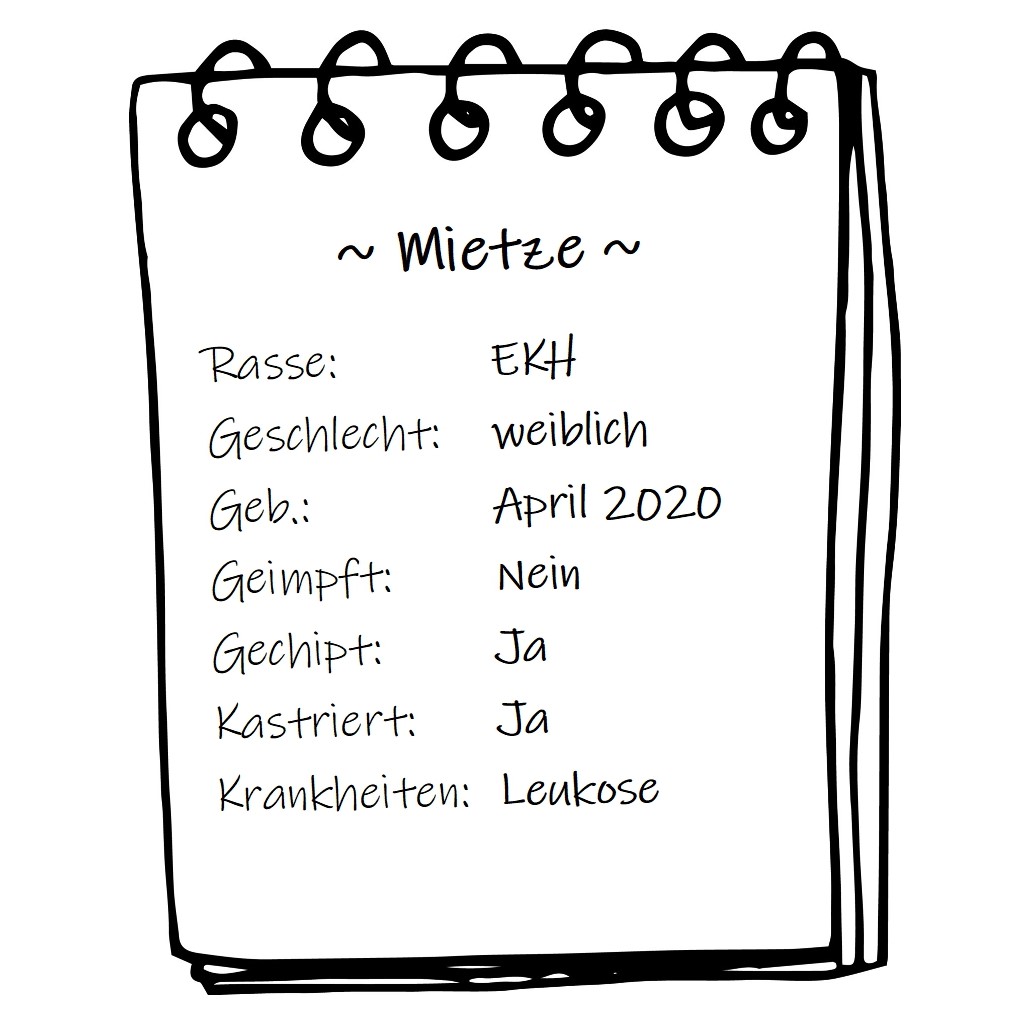 ~ Mietze ~
Rasse: EKH
Geschlecht: weiblich
Geb.: April 2020
Geimpft: Nein
Gechipt: Ja
Kastriert: Ja
Krankheiten: Leukose